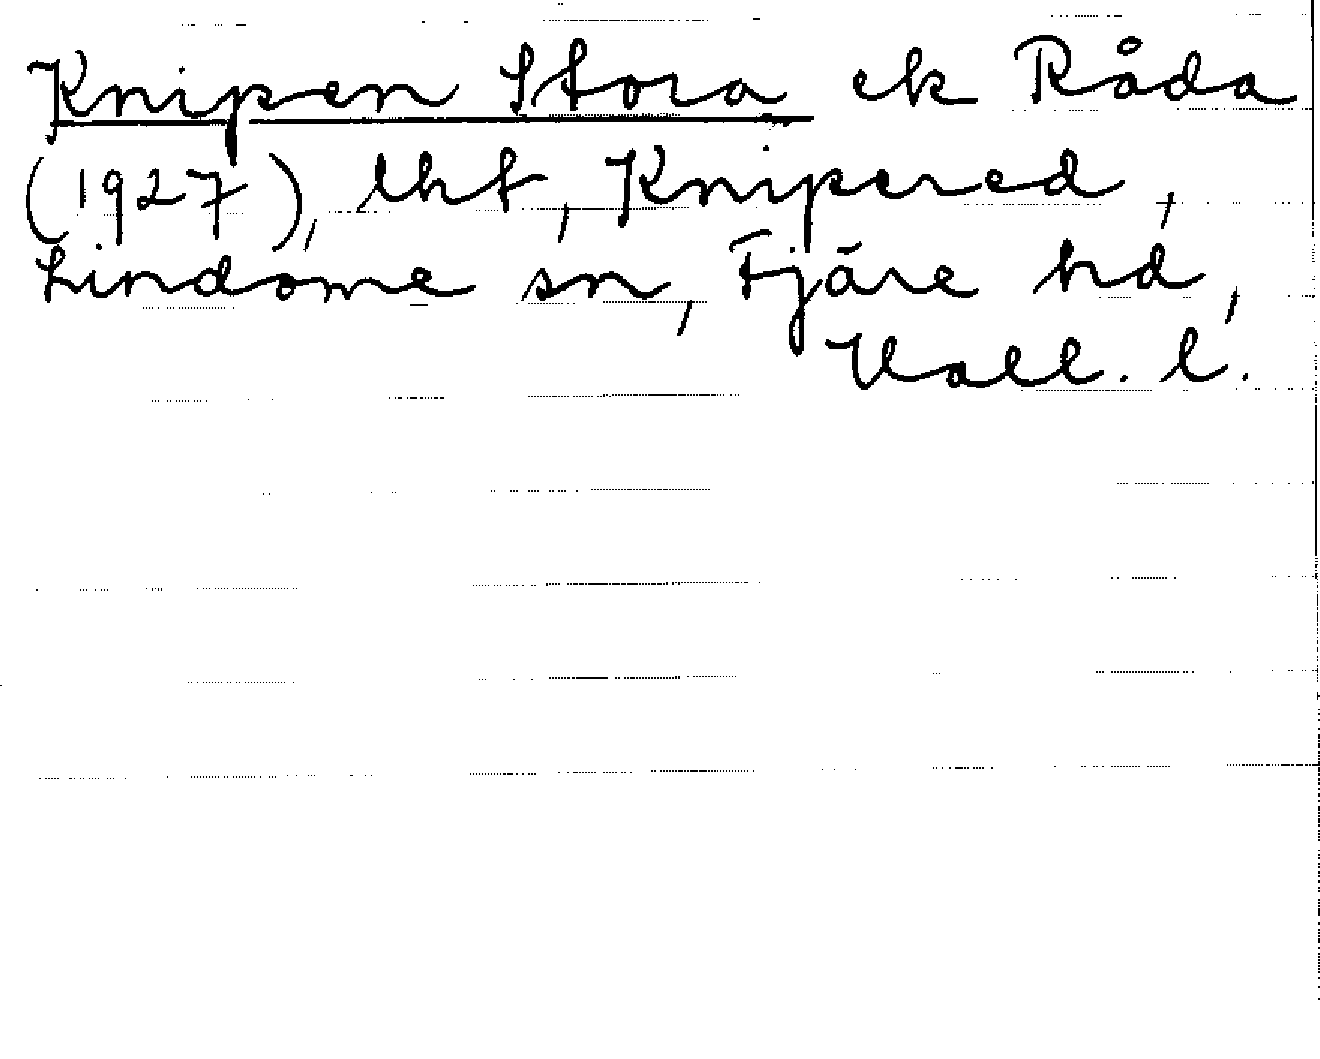 Knipen Stora ek Råda
(1927), lht, Knipered,
Lindome sn, Fjäre hd,
Hall. l.